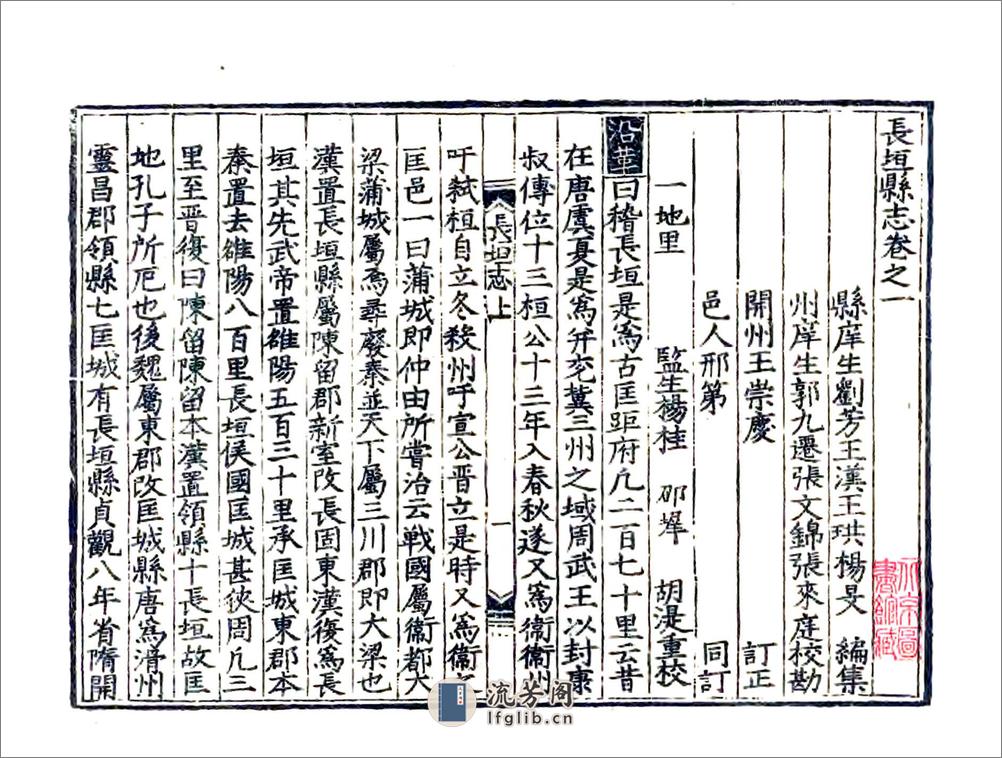 長垣縣志卷之一
縣庠生劉芳王漢王珙楊旻　編集
州庠生郭九遷張文錦張來庭校勘
開州王崇慶　訂正
邑人邢第　同訂
監生楊桂　邵墀　胡湜重校
一地里
沿革曰稽長垣是爲古匡距府凡二百七十里云昔
在唐虞夏是爲并兖冀三州之域周武王以封康
叔傳位十三桓公十三年入春秋遂又爲衞衞州
吁弒桓自立冬殺州吁宣公晉立是時又爲衞
匡邑一曰蒲城即仲由所嘗治云戰國屬衞都大
梁蒲城屬焉彞廢秦並天下屬三川郡即大梁也
漢置長垣縣屬陳留郡新室改長固東漢復爲長
垣其先武帝置雒陽五百三十里承匡城東郡本
秦置去雒陽八百里長垣侯國匡城甚狹周凢三
里至晉復曰陳留陳留本漢置領縣十長垣故匡
地孔子所厄也後魏屬東郡改匡城縣唐爲滑州
靈昌郡領縣七匡城有長垣縣貞觀八年省隋開
長垣志上
一
北京圖
書館藏
流芳阁
lfglib.cn